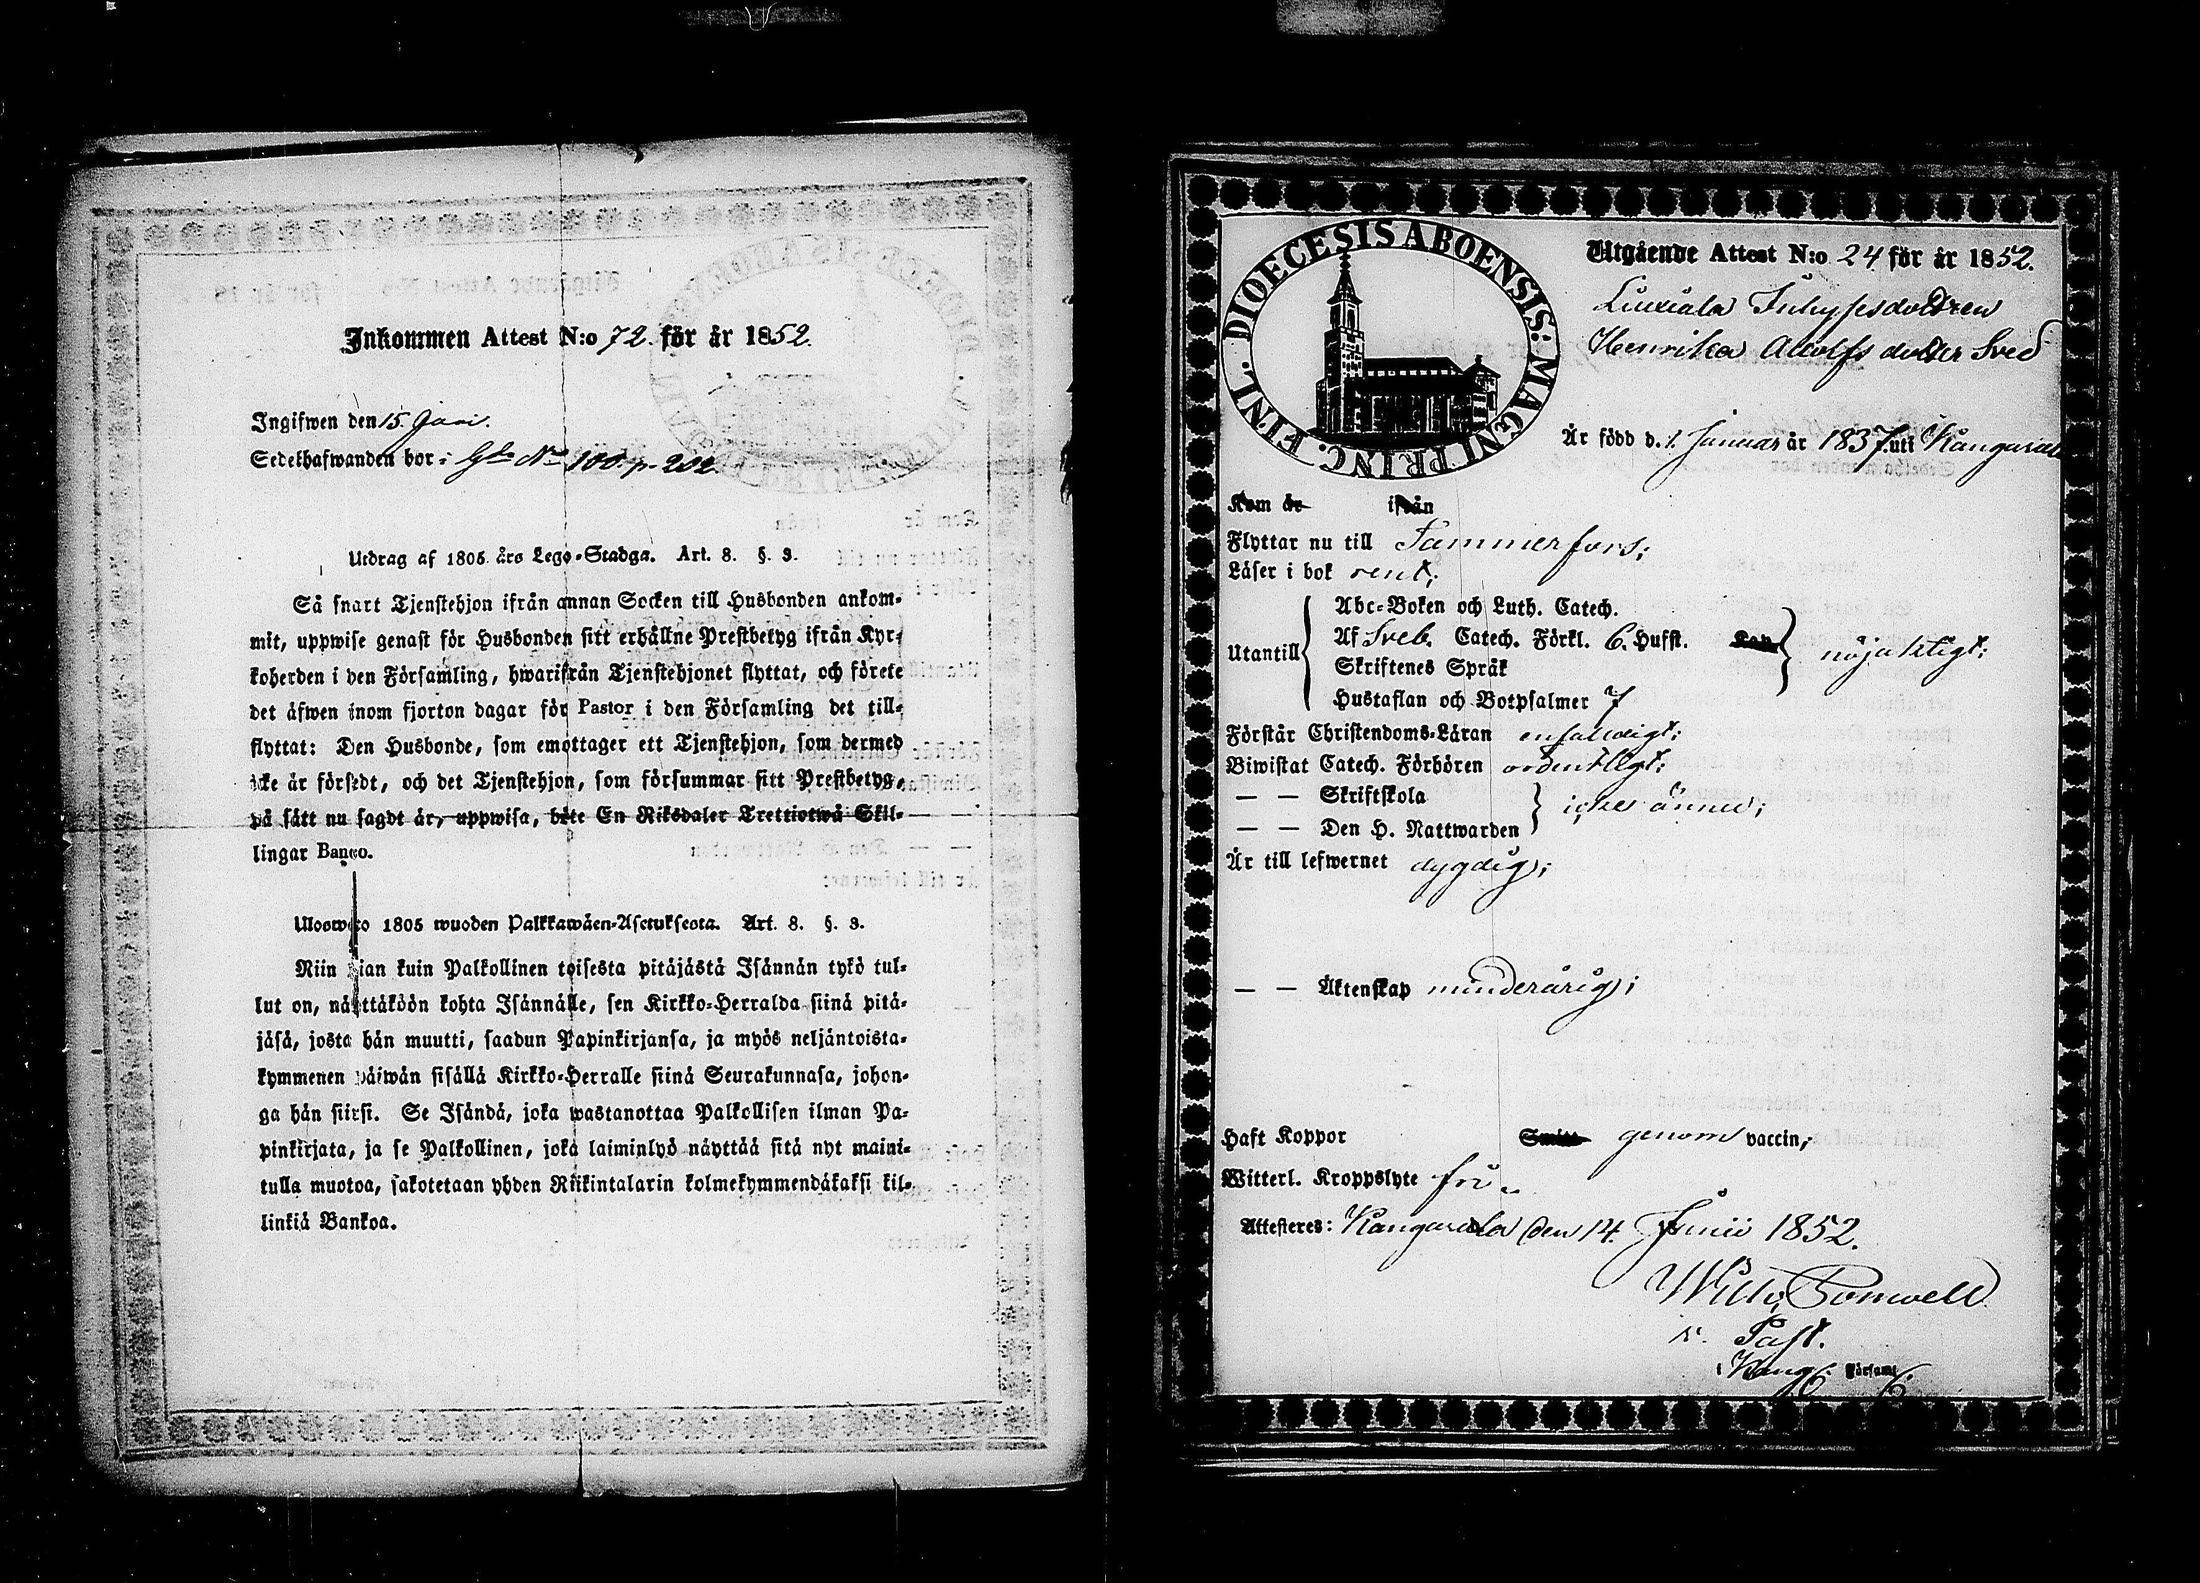 Inkommen Attest N:o 72. för år 1852.
Ingifwen den 15. Juni.
Sedelhafwanden bor i Gln No 100. p. 202.
Utdrag af 1805 års Lego-Stadga. Art. 8. §. 3.
Så snart Tjenstehjon ifrån annan Socken till Husbonden ankom-
mit, uppwise genast för Husbonden sitt erhållne Prestbetyg ifrån Kyr-
koherden i den Församling, hwarifrån Tjenstehjonet flyttat, och förete
det äfwen inom fjorton dagar för Pastor i den Församling det till-
flyttat: Den Husbonde, som emottager ett Tjenstehjon, som dermed
icke är försedt, och det Tjenstehjon, som försummar sitt Prestbetyg,
på sätt nu sagdt är, uppwisa, böte En Riksdaler Trettiotwå Skil-
lingar Banco.
Ulosweto 1805 wuoden Palkkawäen-Asetuksesta. Art. 8. §. 3.
Niin pian kuin Palkollinen toisesta pitäjästä Isännän tykö tul-
lut on, näyttäköön kohta Isännälle, sen Kirkko-Herralda siinä pitä-
jäsä, josta hän muutti, saadun Papinkirjansa, ja myös neljäntoista-
kymmenen päiwän sisällä Kirkko-Herralle siinä Seurakunnasa, johon-
ga hän siirsi. Se Isändä, joka wastanottaa Palkollisen ilman Pa-
pinkirjata, ja se Palkollinen, joka laiminlyö näyttää sitä nyt maini-
tulla muotoa, sakotetaan yhden Rikintalarin kolmekymmendäkaksi kil-
linkiä Bankoa.
DIOECESIS ABOENSIS: MAGNI PRINC. FINL.
Utgående Attest N:o 24 för år 1852.
Liuxiala Inhysesdottren
Henrika Adolfs dotter Sved
Är född d. 1. Januar år 1837. uti Kangasala
Kom år ifrån
Flyttar nu till Tammerfors;
Läser i bok rent;
Utantill
Abc-Boken och Luth. Catech.
Af Sveb. Catech. Förkl. 6. Hufst. Kap
Skriftenes Språk
Hustaflan och Botpsalmer 7
nöjaktigt;
Förstår Christendoms-Läran enfaldigt;
Biwistat Catech. Förhören ordentligt;
— — Skriftskola
— — Den H. Nattwarden
icke ännu;
Är till lefwernet dygdig;
— — Äktenskap minderårig;
Haft Koppor Smitt genom vaccin;
Witterl. Kroppslyte fri.
Attesteras: Kangasala den 14. Junii 1852.
Past.
i Kang. Församl.